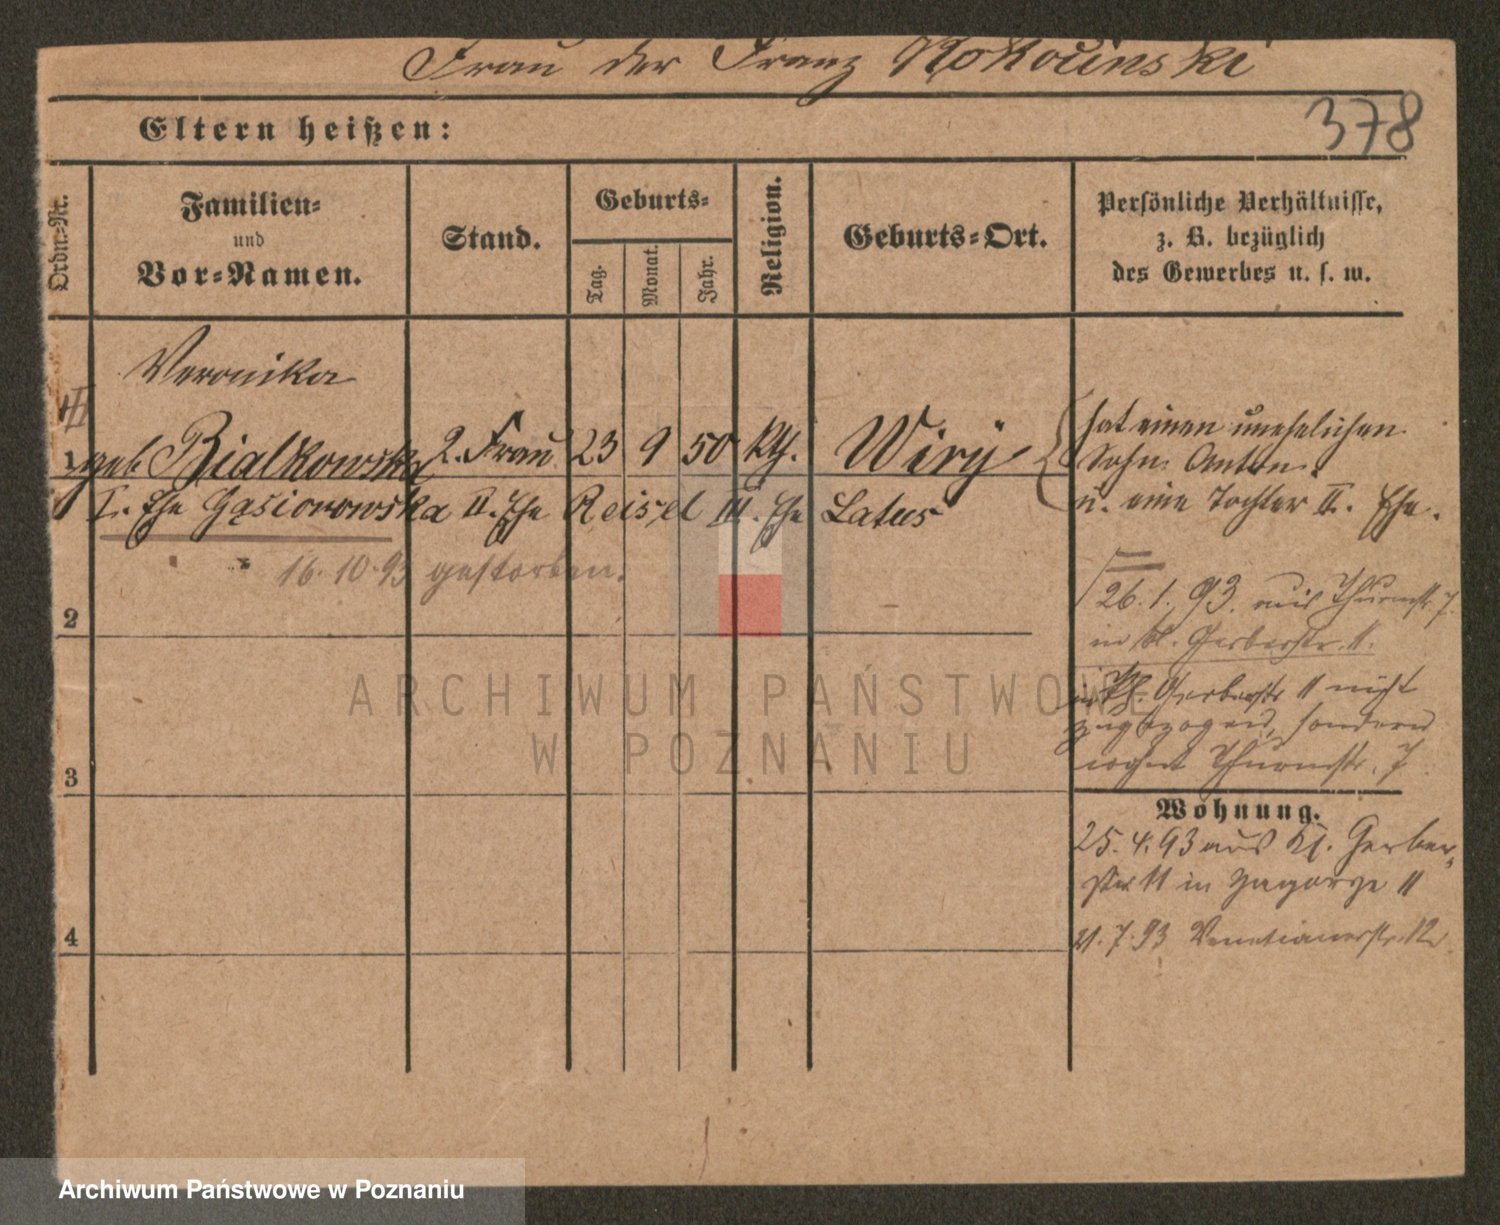 Frau der Franz Rokocinski
378
Eltern heißen:
Ordn.-Nr.
Familien-
und
Vor-Namen.
Stand.
Geburts-
Tag.
Monat.
Jahr.
Religion.
Geburts-Ort.
Persönliche Verhältnisse,
z. B. bezüglich
des Gewerbes u. s. w.
Veronika
1 geb Bialkowska 2. Frau 23 9 50 kth. Wiry
hat einen unehelichen
Sohn Anton.
u. eine Tochter II. Ehe.
I. Ehe Gąsiorowska II. Ehe Reisel III. Ehe Latus
16.10.93 gestorben.
26.1.93. aus Thurmstr. 7.
in kl. Gerberstr. 11.
2
in Kl. Gerberstr 11 nicht
zugezogen, sondern
wohnt Thurmstr. 7
3
Wohnung.
25.4.93 aus Kl. Gerber-
str 11 in Zagorze 11
21.7.93 Venetianerstr. 12
4
ARCHIWUM PAŃSTWOWE
W POZNANIU
Archiwum Państwowe w Poznaniu